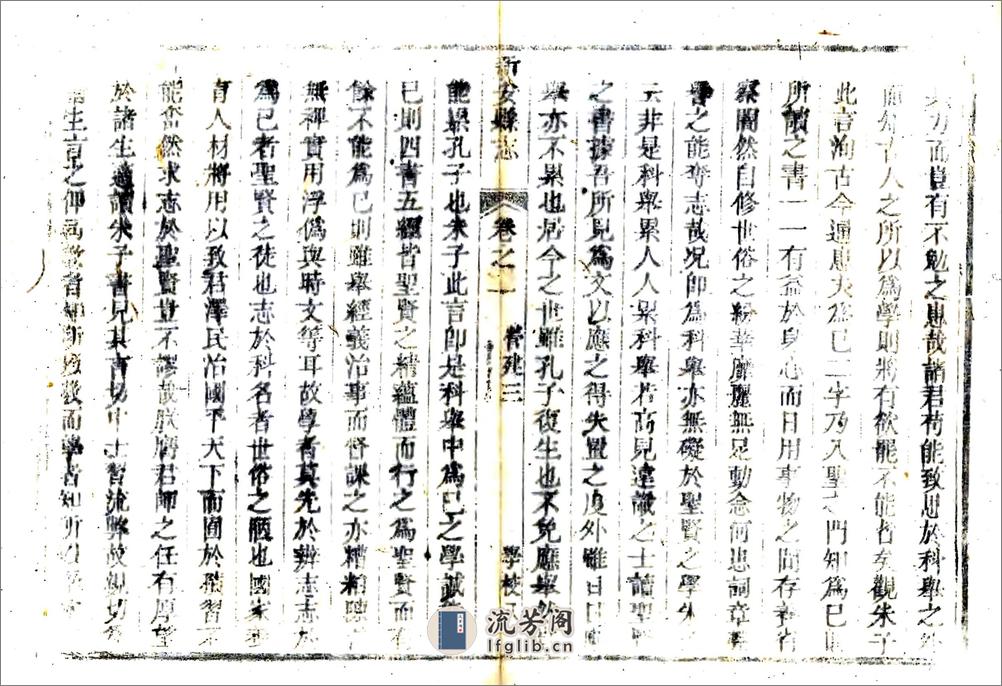 力而豈有不勉之患哉諸君苟能致思於科舉之外
而知古人之所以為學則將有欲罷不能者矣觀朱子
此言洵古今通患夫為已二字乃入聖之門知為已則
所讀之書一一有益於身心而日用事物之間存養省
察闇然自修世俗之紛華靡麗無足動念何患詞章聲
譽之能奪志哉况即為科舉亦無礙於聖賢之學朱子
云非是科舉累人人累科舉若高見遠識之士讀聖賢
之書據吾所見為文以應之得失置之度外雖日日應
舉亦不累也居今之世雖孔子復生也不免應舉然豈
新安縣志 卷之二 營建三 學校
能累孔子也朱子此言即是科舉中為已之學誠能為
已則四書五經皆聖賢之精蘊體而行之為聖賢而有
餘不能為已則雖舉經義治事而督課之亦糟粕陳言
無裨實用浮偽與時文等耳故學者莫先於辨志志於
為已者聖賢之徒也志於科名者世俗之陋也國家養
育人材將用以致君澤民治國平天下而囿於積習不
能奮然求志於聖賢豈不謬哉朕膺君師之任有厚望
於諸生適讀朱子書見其言切中士習流弊故親切為
諸生言之俾為教者知所以教而學者知所以學